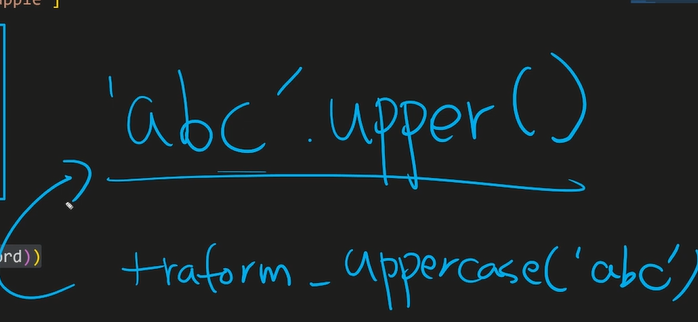 apple"]
'abc'.upper()
ord))
traform_uppercase('abc')